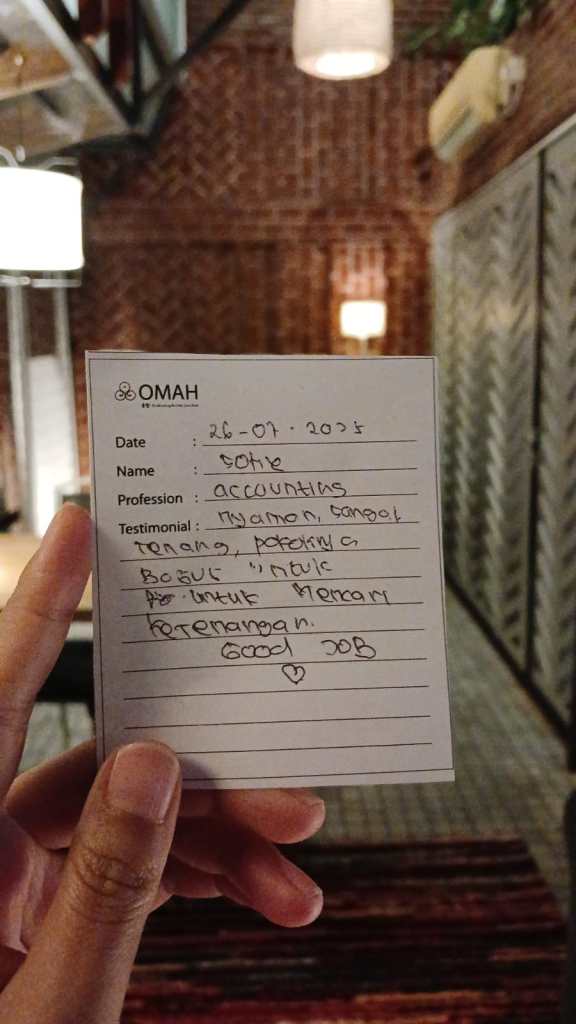 OMAH
Date : 26-07-2025
Name : Sofie
Profession : accounting
Testimonial : nyaman, sangat
tenang, pokoknya
Bagus untuk
untuk Mencari
ketenangan.
Good JOB
♡